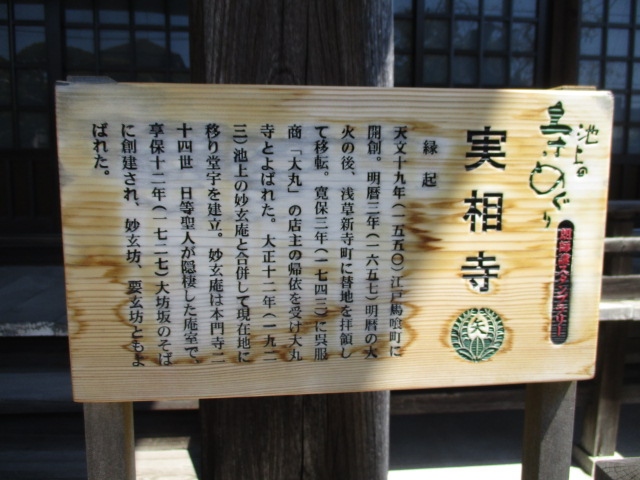 池上の
寺めぐり
実相寺
縁起
天文十九年(一五五〇)江戸馬喰町に
開創。明暦三年(一六五七)明暦の大
火の後、浅草新寺町に替地を拝領し
て移転。寛保三年(一七四三)に呉服
商「大丸」の店主の帰依を受け大丸
寺とよばれた。大正十二年(一九二
三)池上の妙玄庵と合併して現在地に
移り堂宇を建立。妙玄庵は本門寺二
十四世 日等聖人が隠棲した庵室で、
享保十二年(一七二七)大坊坂のそば
に創建され、妙玄坊、要玄坊ともよ
ばれた。